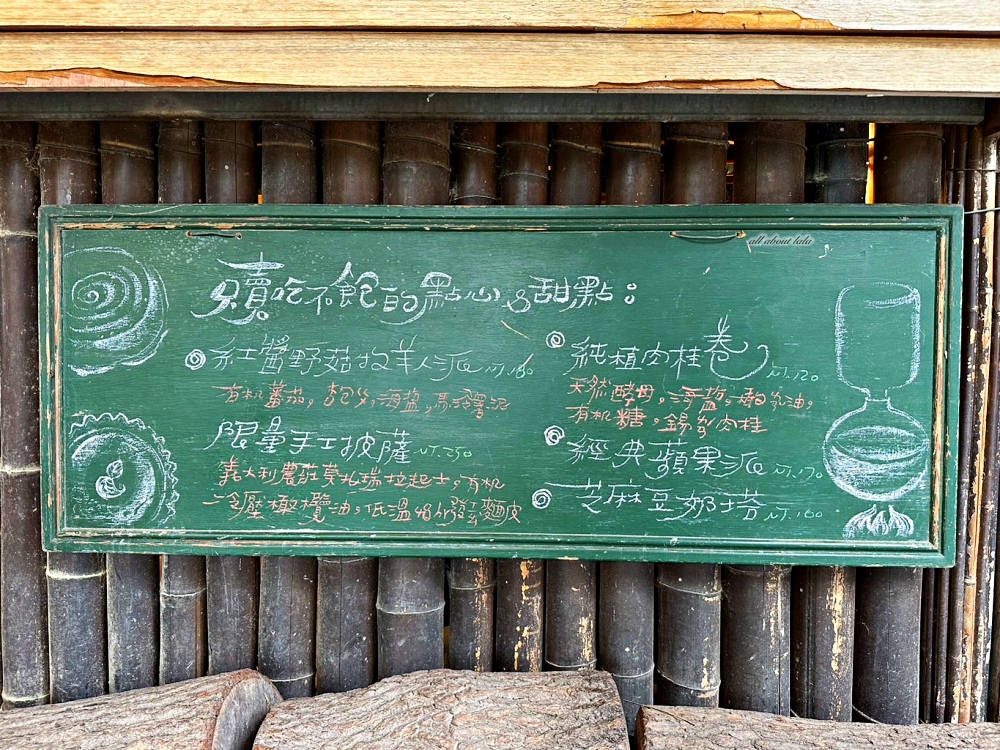 all about lala
續吃不飽的點心&甜點:
紅醬野菇牧羊人派 NT.180
有机蕃茄,海塩,馬玲薯泥
限量手工披薩 NT.250
義大利農莊莫札瑞拉起士,有机
冷壓橄欖油,低溫48hr發酵麵皮
純植肉桂卷 NT.120
天然酵母,海塩,椰奶油,
有机糖,錫蘭肉桂
經典蘋果派 NT.170
芝麻豆奶塔 NT.160